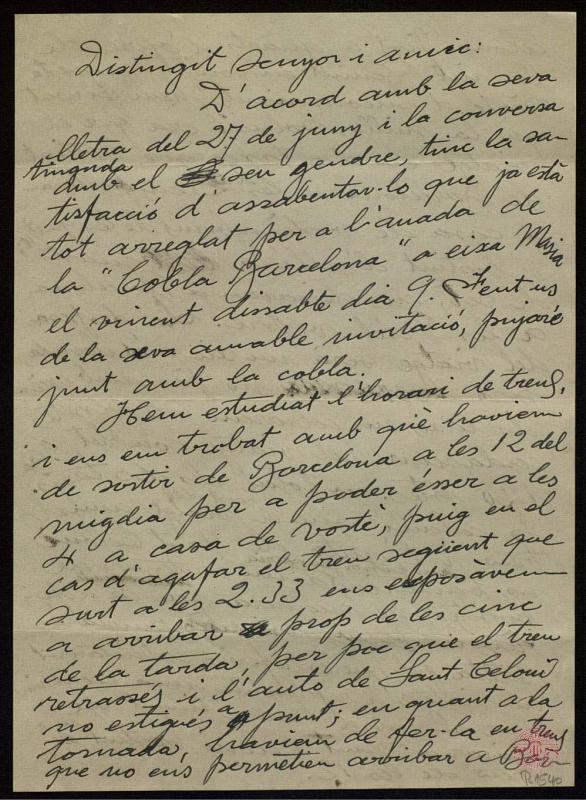 Distingit senyor i amic:
D'acord amb la seva
lletra del 27 de juny i la conversa
tinguda
amb el seu gendre, tinc la sa-
tisfacció d'assabentar-lo que ja està
tot arreglat per a l'anada de
la "Cobla Barcelona" a eixa Masia
el vinent dissabte dia 9. Fent us
de la seva amable invitació, pujaré
junt amb la cobla.
Hem estudiat l'horari de trens,
i ens em trobat amb què haviem
de sortir de Barcelona a les 12 del
migdia per a poder ésser a les
4 a casa de vosté, puig en el
cas d'agafar el tren següent que
surt a les 2.33 ens exposàvem
a arribar a prop de les cinc
de la tarda, per poc que el tren
retrassés i l'auto de Sant Celoni
no estigués a punt; en quant a la
tornada, haviem de fer-la en trens
que no ens permetien arribar a Bar-
R.1540